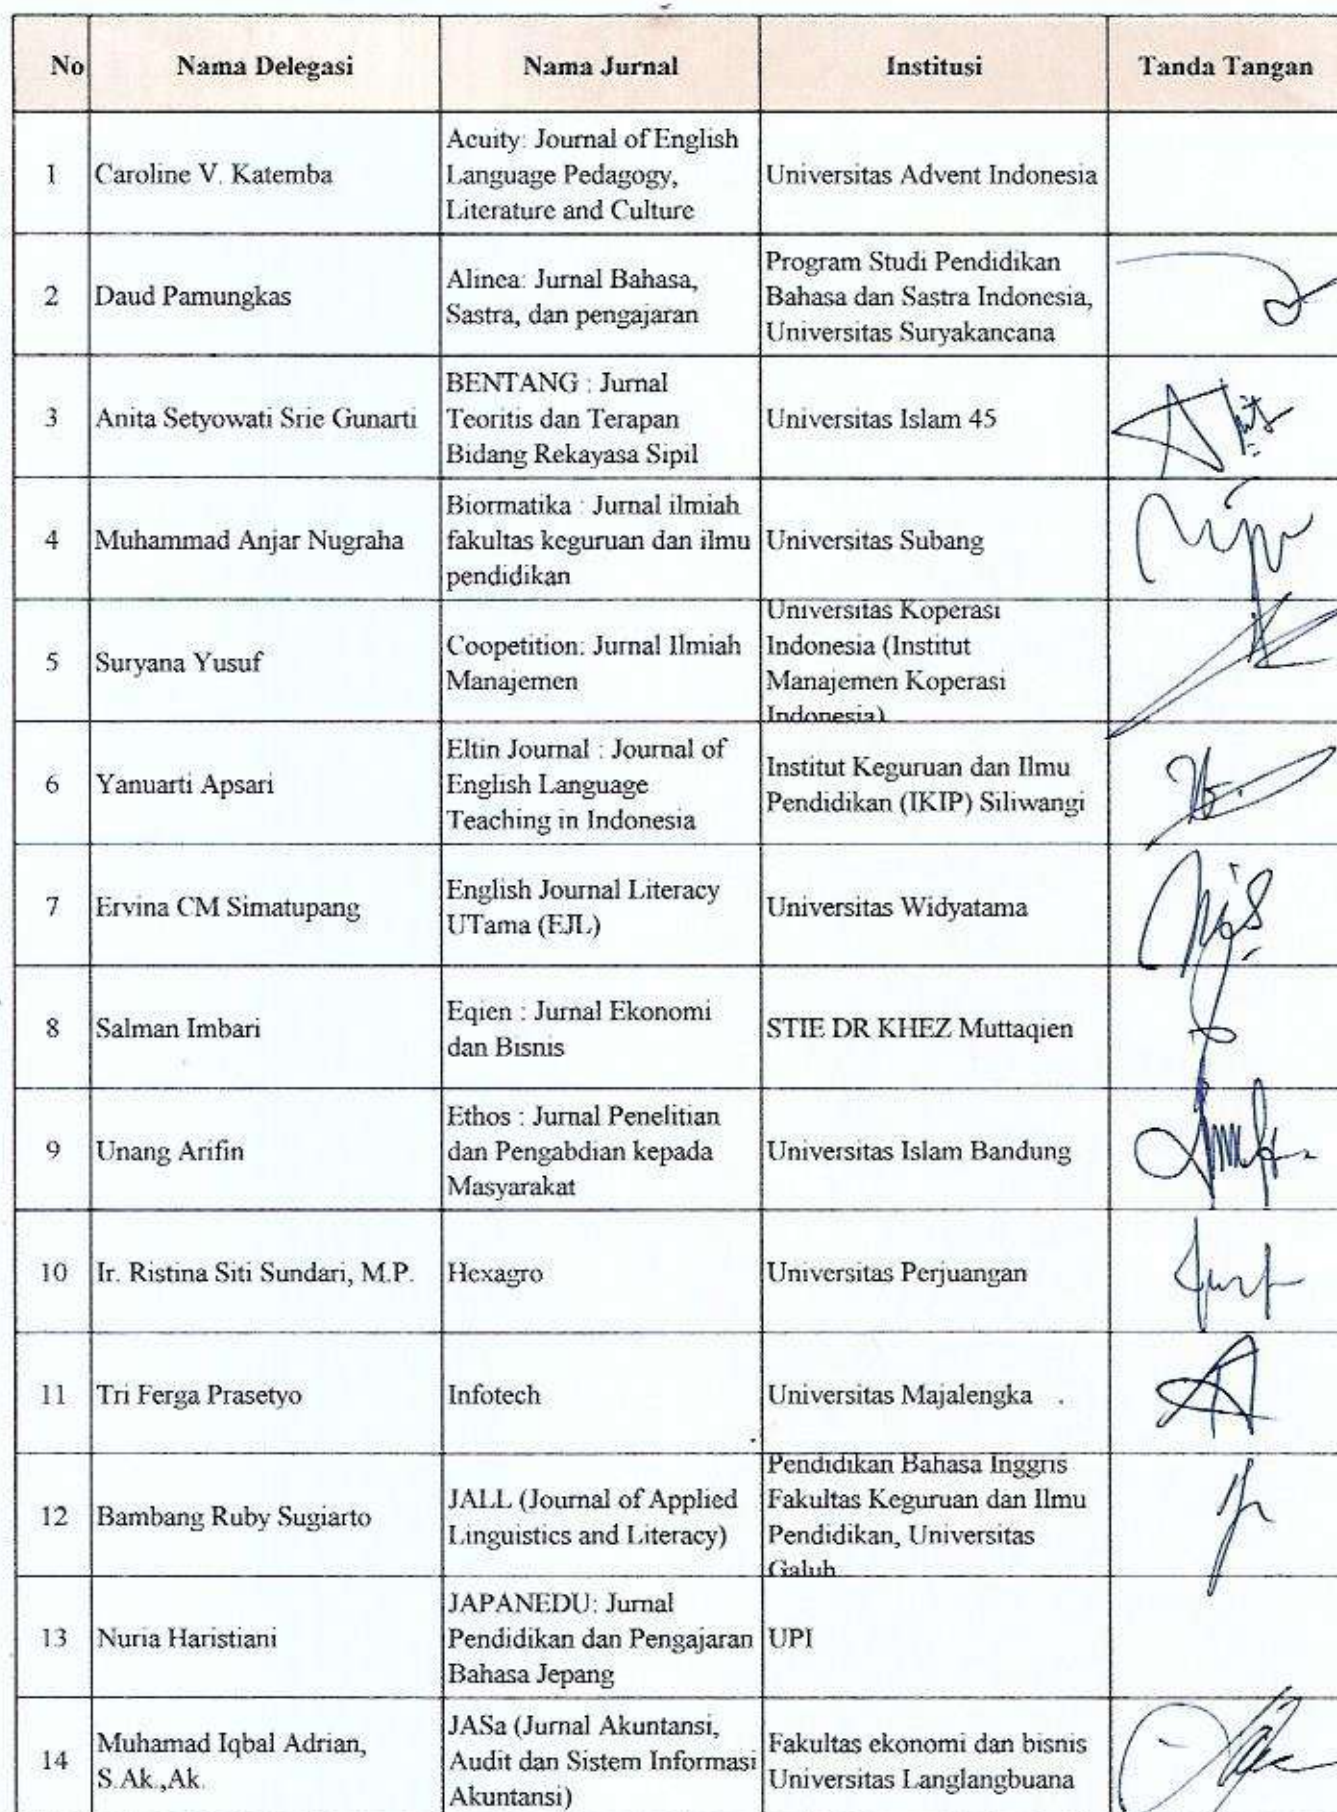 No
Nama Delegasi
Nama Jurnal
Institusi
Tanda Tangan
1
Caroline V. Katemba
Acuity: Journal of English
Language Pedagogy,
Literature and Culture
Universitas Advent Indonesia
2
Daud Pamungkas
Alinea: Jurnal Bahasa,
Sastra, dan pengajaran
Program Studi Pendidikan
Bahasa dan Sastra Indonesia,
Universitas Suryakancana
3
Anita Setyowati Srie Gunarti
BENTANG : Jurnal
Teoritis dan Terapan
Bidang Rekayasa Sipil
Universitas Islam 45
4
Muhammad Anjar Nugraha
Biormatika : Jurnal ilmiah
fakultas keguruan dan ilmu
pendidikan
Universitas Subang
5
Suryana Yusuf
Coopetition: Jurnal Ilmiah
Manajemen
Universitas Koperasi
Indonesia (Institut
Manajemen Koperasi
Indonesia)
6
Yanuarti Apsari
Eltin Journal : Journal of
English Language
Teaching in Indonesia
Institut Keguruan dan Ilmu
Pendidikan (IKIP) Siliwangi
7
Ervina CM Simatupang
English Journal Literacy
UTama (EJL)
Universitas Widyatama
8
Salman Imbari
Eqien : Jurnal Ekonomi
dan Bisnis
STIE DR KHEZ Muttaqien
9
Unang Arifin
Ethos : Jurnal Penelitian
dan Pengabdian kepada
Masyarakat
Universitas Islam Bandung
10
Ir. Ristina Siti Sundari, M.P.
Hexagro
Universitas Perjuangan
11
Tri Ferga Prasetyo
Infotech
Universitas Majalengka
12
Bambang Ruby Sugiarto
JALL (Journal of Applied
Linguistics and Literacy)
Pendidikan Bahasa Inggris
Fakultas Keguruan dan Ilmu
Pendidikan, Universitas
Galuh
13
Nuria Haristiani
JAPANEDU: Jurnal
Pendidikan dan Pengajaran
Bahasa Jepang
UPI
14
Muhamad Iqbal Adrian,
S.Ak.,Ak.
JASa (Jurnal Akuntansi,
Audit dan Sistem Informasi
Akuntansi)
Fakultas ekonomi dan bisnis
Universitas Langlangbuana